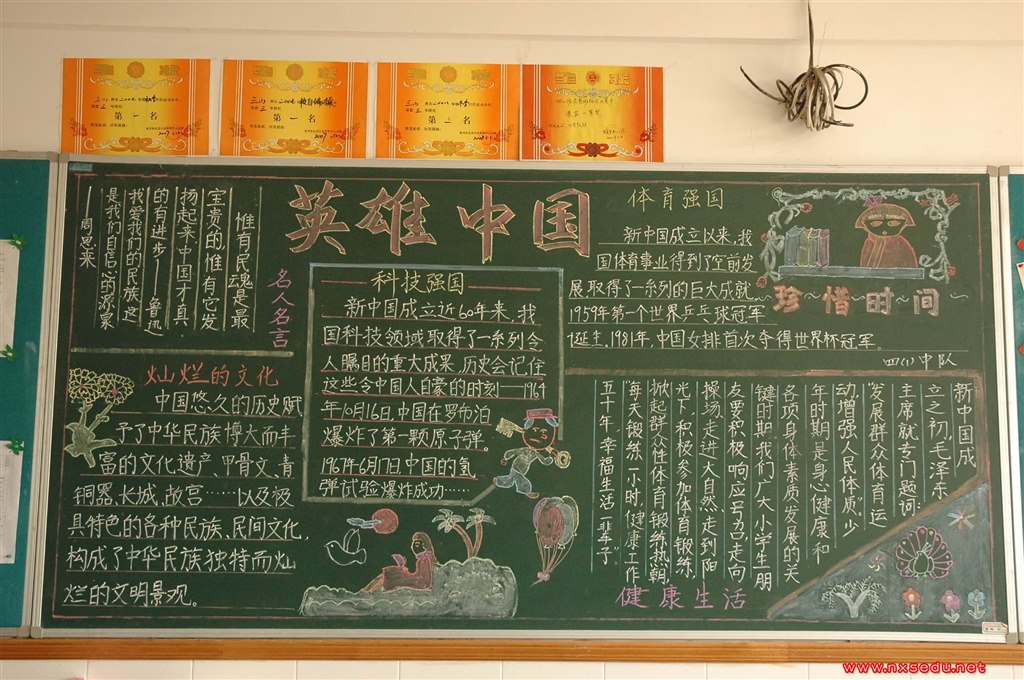 第一名
第一名
第二名
英雄中国
惟有民魂是最
宝贵的,惟有它发
扬起来,中国才有真
的有进步——鲁迅
我爱我们的民族,这
是我们自信心的源泉
——周恩来
名人名言
灿烂的文化
中国悠久的历史赋
予了中华民族博大而丰
富的文化遗产、甲骨文、青
铜器、长城、故宫……以及极
具特色的各种民族、民间文化,
构成了中华民族独特而灿
烂的文明景观。
科技强国
新中国成立近60年来,我
国科技领域取得了一系列令
人瞩目的重大成果,历史会记住
这些令中国人自豪的时刻——1964
年10月16日,中国在罗布泊
爆炸了第一颗原子弹。
1967年6月17日,中国的氢
弹试验爆炸成功……
体育强国
新中国成立以来,我
国体育事业得到了空前发
展,取得了一系列的巨大成就。
1959年第一个世界乒乓球冠军
诞生,1981年,中国女排首次夺得世界杯冠军。
珍惜时间
四(1)中队
新中国成
立之初,毛泽东
主席就专门题词:
“发展群众体育运
动,增强人民体质”。少
年时期,是身心健康和
各项身体素质发展的关
键时期,我们广大小学生朋
友要积极响应号召,走向
操场、走进大自然、走到阳
光下,积极参加体育锻练,
掀起群众性体育锻练热潮,
“每天锻练一小时,健康工作
五十年,幸福生活一辈子”
健康生活
www.nxsedu.net